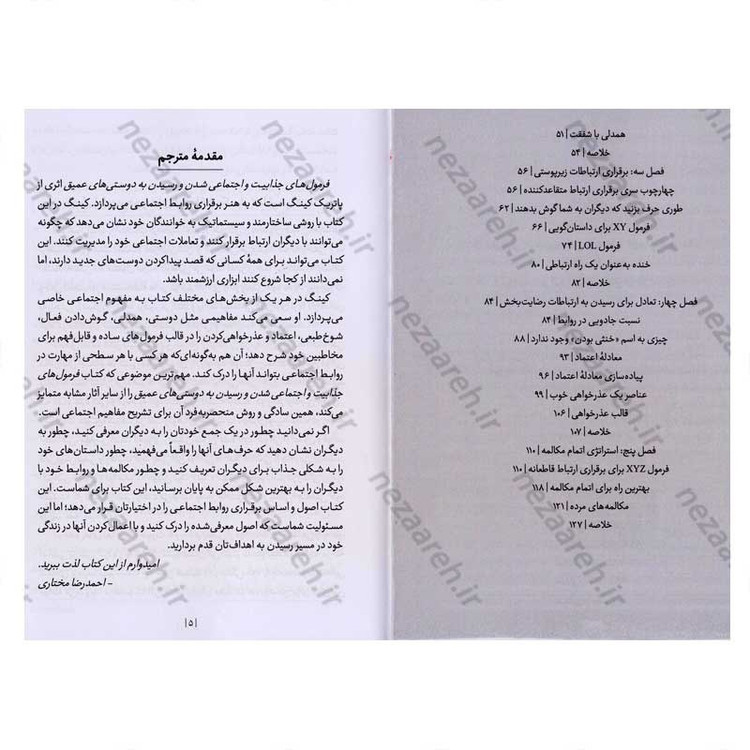 همدلی با شفقت | ۵۱
خلاصه | ۵۴
فصل سه: برقراری ارتباطات زیرپوستی | ۵۶
چهارچوب سری برقراری ارتباط متقاعدکننده | ۵۶
طوری حرف بزنید که دیگران به شما گوش بدهند | ۶۲
فرمول XY برای داستان‌گویی | ۶۶
فرمول LOL | ۷۴
خنده به‌عنوان یک راه ارتباطی | ۸۰
خلاصه | ۸۲
فصل چهار: تعادل برای رسیدن به ارتباطات رضایت‌بخش | ۸۴
نسبت جادویی در روابط | ۸۴
چیزی به اسم «خنثی بودن» وجود ندارد | ۸۸
معادلهٔ اعتماد | ۹۳
پیاده‌سازی معادلهٔ اعتماد | ۹۶
عناصر یک عذرخواهی خوب | ۹۹
قالب عذرخواهی | ۱۰۶
خلاصه | ۱۰۷
فصل پنج: استراتژی اتمام مکالمه | ۱۱۰
فرمول XYZ برای برقراری ارتباط قاطعانه | ۱۱۰
بهترین راه برای اتمام مکالمه | ۱۱۸
مکالمه‌های مرده | ۱۲۱
خلاصه | ۱۲۷
مقدمهٔ مترجم
فرمول‌های جذابیت و اجتماعی شدن و رسیدن به دوستی‌های عمیق اثری از
پاتریک کینگ است که به هنر برقراری روابط اجتماعی می‌پردازد. کینگ در این
کتاب با روشی ساختارمند و سیستماتیک به خوانندگان خود نشان می‌دهد که چگونه
می‌توانند با دیگران ارتباط برقرار کنند و تعاملات اجتماعی خود را مدیریت کنند. این
کتاب می‌تواند برای همهٔ کسانی که قصد پیداکردن دوست‌های جدید دارند، اما
نمی‌دانند از کجا شروع کنند ابزاری ارزشمند باشد.
کینگ در هر یک از بخش‌های مختلف کتاب به مفهوم اجتماعی خاصی
می‌پردازد. او سعی می‌کند مفاهیمی مثل دوستی، همدلی، گوش‌دادن فعال،
شوخ‌طبعی، اعتماد و عذرخواهی‌کردن را در قالب فرمول‌های ساده و قابل‌فهم برای
مخاطبین خود شرح دهد؛ آن هم به‌گونه‌ای‌که هر کسی با هر سطحی از مهارت در
روابط اجتماعی بتواند آنها را درک کند. مهم‌ترین موضوعی که کتاب فرمول‌های
جذابیت و اجتماعی شدن و رسیدن به دوستی‌های عمیق را از سایر آثار مشابه متمایز
می‌کند، همین سادگی و روش منحصربه‌فرد آن برای تشریح مفاهیم اجتماعی است.
اگر نمی‌دانید چطور در یک جمع خودتان را به دیگران معرفی کنید، چطور به
دیگران نشان دهید که حرف‌های آنها را واقعاً می‌فهمید، چطور داستان‌های خود
را به شکلی جذاب برای دیگران تعریف کنید و چطور مکالمه‌ها و روابط خود با
دیگران را به بهترین شکل ممکن به پایان برسانید، این کتاب برای شماست. این
کتاب اصول و اساس برقراری روابط اجتماعی را در اختیارتان قرار می‌دهد؛ اما این
مسئولیت شماست که اصول معرفی‌شده را درک کنید و با اعمال‌کردن آنها در زندگی
خود در مسیر رسیدن به اهداف‌تان قدم بردارید.
امیدوارم از این کتاب لذت ببرید.
– احمدرضا مختاری
| ۵ |
nezaareh.ir
nezaareh.ir
nezaareh.ir
nezaareh.ir
nezaareh.ir
nezaareh.ir
nezaareh.ir
nezaareh.ir